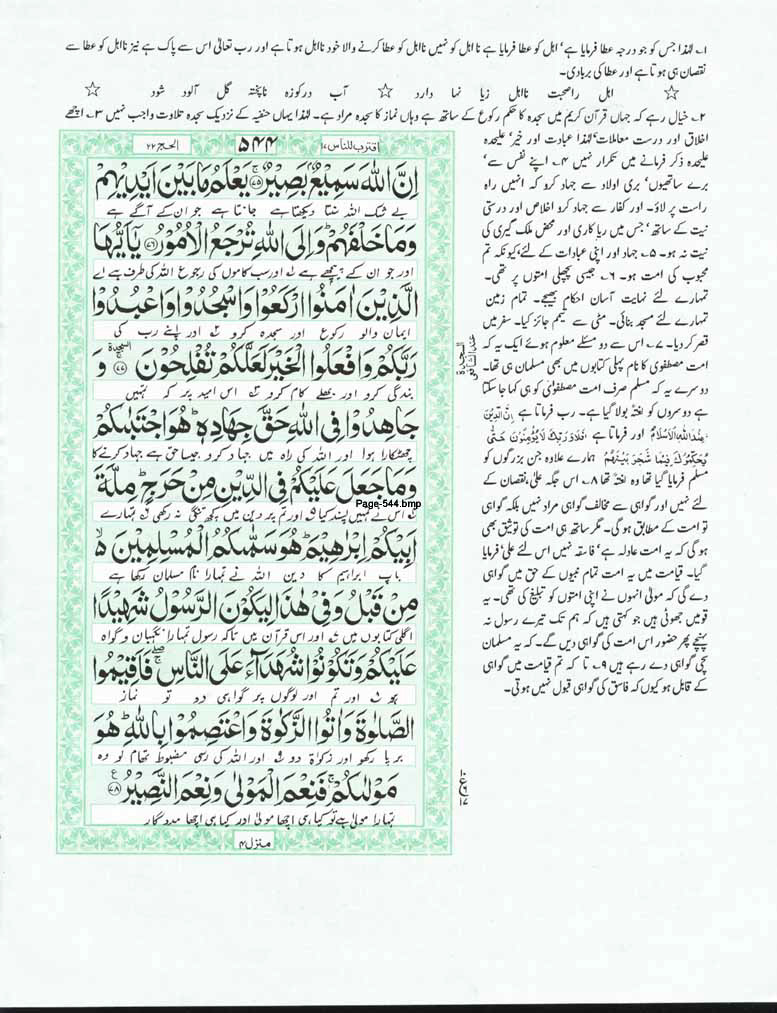 ۱؎ لہٰذا جس کو جو درجہ عطا فرمایا ہے اہل کو عطا فرمایا ہے نا اہل کو نہیں نااہل کو عطا کرنے والا خود نااہل ہوتا ہے اور رب تعالیٰ اس سے پاک ہے نیز نااہل کو عطا سے
نقصان ہی ہوتا ہے اور عطا کی بربادی۔
☆ اہل را صحبت نااہل زیا نما دارد ☆ آب در کوزہ ناپختہ گل آلود شود ☆
۲؎ خیال رہے کہ جہاں قرآن کریم میں سجدہ کا حکم رکوع کے ساتھ ہے وہاں نماز کا سجدہ مراد ہے۔ لہٰذا یہاں حنفیہ کے نزدیک سجدہ تلاوت واجب نہیں ۳؎ اچھے
اخلاق اور درست معاملات لہٰذا عبادت اور خیر علیحدہ
علیحدہ ذکر فرمانے میں تکرار نہیں ۴؎ اپنے نفس سے
برے ساتھیوں، بری اولاد سے جہاد کرو کہ انہیں راہ
راست پر لاؤ۔ اور کفار سے جہاد کرو اخلاص اور درستی
نیت کے ساتھ جس میں ریا کاری اور محض ملک گیری کی
نیت نہ ہو۔ ۵؎ جہاد اور اپنی عبادات کے لئے کیونکہ تم
محبوب کی امت ہو۔ ۶؎ جیسی پچھلی امتوں پر تھی۔
تمہارے لئے نہایت آسان احکام بھیجے۔ تمام زمین
تمہارے لئے مسجد بنائی۔ مٹی سے تیمم جائز کیا۔ سفر میں
قصر کر دیا۔ ۷؎ اس سے دو مسئلے معلوم ہوئے ایک یہ کہ
امت مصطفوی کا نام پہلی کتابوں میں بھی مسلمان ہی تھا۔
دوسرے یہ کہ مسلم صرف امت مصطفوی کو ہی کہا جا سکتا
ہے دوسروں کو لغتہً بولا گیا ہے۔ رب فرماتا ہے اِنَّ الدِّیْنَ
عِنْدَ اللّٰہِ الْاِسْلَامُ اور فرماتا ہے فَلَا وَرَبِّكَ لَا يُؤْمِنُوْنَ حَتّٰى
يُحَكِّمُوْكَ فِيْمَا شَجَرَ بَيْنَهُمْ ہمارے علاوہ جن بزرگوں کو
مسلم فرمایا گیا تھا وہ لغتہً تھا ۸؎ اس جگہ علیٰ نقصان کے
لئے نہیں اور گواہی سے مخالف گواہی مراد نہیں بلکہ گواہی
تو امت کے مطابق ہو گی۔ مگر ساتھ ہی امت کی توثیق بھی
ہو گی کہ یہ امت عادلہ ہے فاسقہ نہیں اس لئے علیٰ فرمایا
گیا۔ قیامت میں یہ امت تمام نبیوں کے حق میں گواہی
دے گی کہ مولیٰ انہوں نے اپنی امتوں کو تبلیغ کی تھی۔ یہ
قومیں جھوٹی ہیں جو کہتی ہیں کہ ہم تک تیرے رسول نہ
پہنچے پھر حضور اس امت کی گواہی دیں گے۔ کہ یہ مسلمان
سچی گواہی دے رہے ہیں ۹؎ تا کہ تم قیامت میں گواہی
کے قابل ہو کیوں کہ فاسق کی گواہی قبول نہیں ہوتی۔
اقترب للناس ۱۷
۵۴۴
الحج ۲۲
اِنَّ اللّٰهَ سَمِيْعٌۢ بَصِيْرٌ ۚ۷۵ يَعْلَمُ مَا بَيْنَ اَيْدِيْهِمْ
بے شک اللہ سنتا دیکھتا ہے جانتا ہے جو ان کے آگے ہے
وَمَا خَلْفَهُمْ ؕ وَاِلَى اللّٰهِ تُرْجَعُ الْاُمُوْرُ ۷۶ يٰۤاَيُّهَا
اور جو ان کے پیچھے ہے اور سب کاموں کی رجوع اللہ کی طرف ہے اے
الَّذِيْنَ اٰمَنُوا ارْكَعُوْا وَاسْجُدُوْا وَاعْبُدُوْا
ایمان والو رکوع اور سجدہ کرو اور اپنے رب کی
رَبَّكُمْ وَافْعَلُوا الْخَيْرَ لَعَلَّكُمْ تُفْلِحُوْنَ ۚ۷۷ وَ
بندگی کرو اور بھلے کام کرو اس امید پر کہ تمہیں
السجدۃ
السجدۃ عند الشافعی
جَاهِدُوْا فِى اللّٰهِ حَقَّ جِهَادِهٖ ؕ هُوَ اجْتَبٰىكُمْ
چھٹکارا ہو اور اللہ کی راہ میں جہاد کرو جیسا حق ہے جہاد کرنے کا
وَمَا جَعَلَ عَلَيْكُمْ فِى الدِّيْنِ مِنْ حَرَجٍ ؕ مِلَّةَ
اس نے تمہیں پسند کیا اور تم پر دین میں کچھ تنگی نہ رکھی تمہارے
Page-544.bmp
اَبِيْكُمْ اِبْرٰهِيْمَ ؕ هُوَ سَمّٰىكُمُ الْمُسْلِمِيْنَ
باپ ابراہیم کا دین اللہ نے تمہارا نام مسلمان رکھا ہے
مِنْ قَبْلُ وَفِىْ هٰذَا لِيَكُوْنَ الرَّسُوْلُ شَهِيْدًا
اگلی کتابوں میں اور اس قرآن میں تاکہ رسول تمہارا نگہبان و گواہ
عَلَيْكُمْ وَتَكُوْنُوْا شُهَدَآءَ عَلَى النَّاسِ ۚ فَاَقِيْمُوا
ہو اور تم اور لوگوں پر گواہی دو تو نماز
الصَّلٰوةَ وَاٰتُوا الزَّكٰوةَ وَاعْتَصِمُوْا بِاللّٰهِ ؕ هُوَ
برپا رکھو اور زکوٰۃ دو اور اللہ کی رسی مضبوط تھام لو وہ
مَوْلٰىكُمْ ۚ فَنِعْمَ الْمَوْلٰى وَنِعْمَ النَّصِيْرُ ۷۸
تمہارا مولیٰ ہے تو کیا ہی اچھا مولیٰ اور کیا ہی اچھا مددگار
منزل ۴